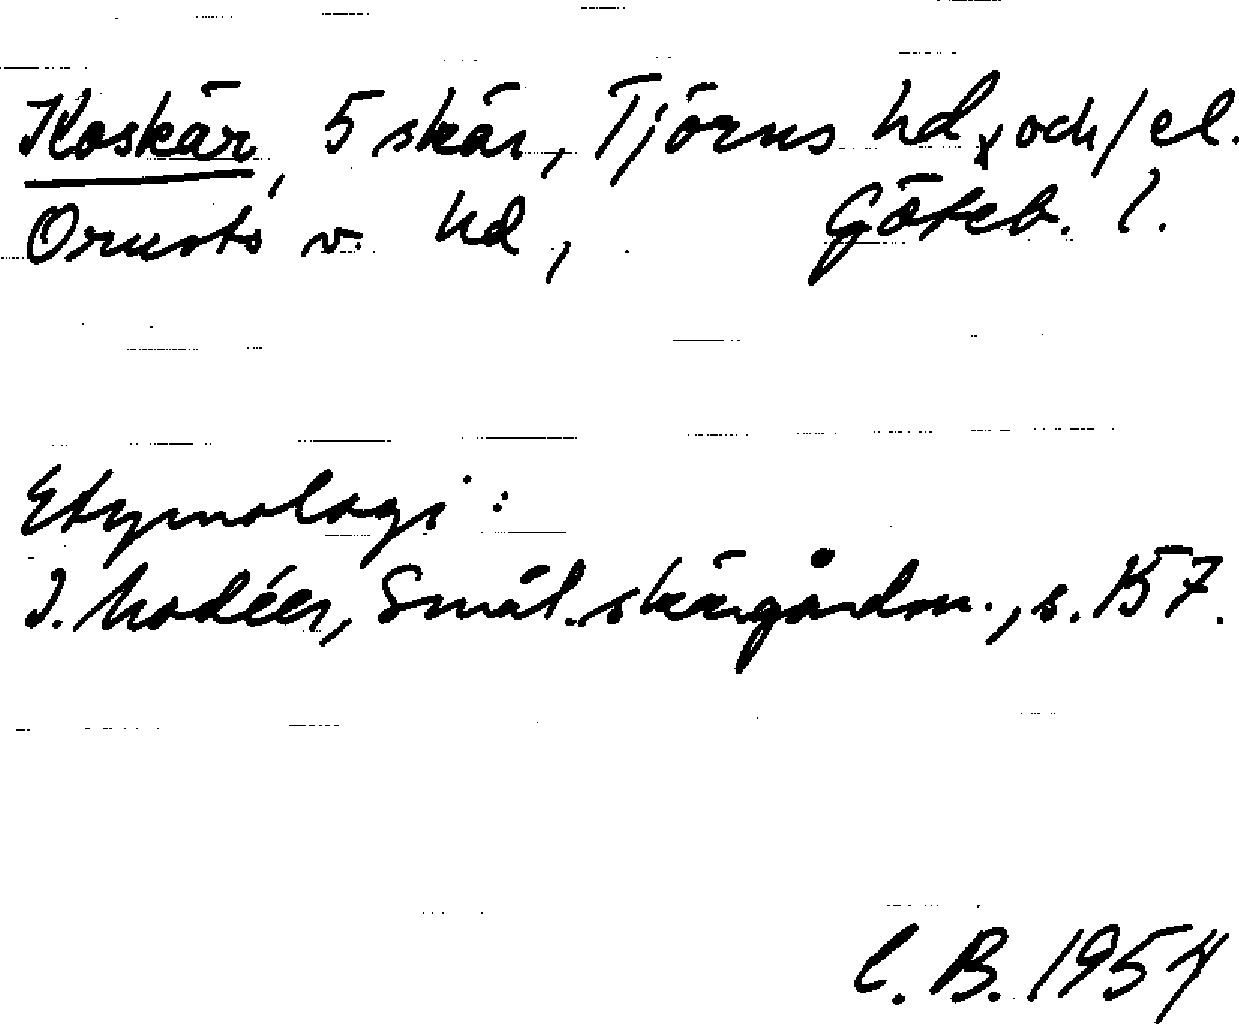 Koskär, 5 skär, Tjörns hd, och/el.
Orusts v. hd, Göteb. l.
Etymologi:
I. Modéer, Smål. skärgårdsn., s. 157.
C. B. 1954